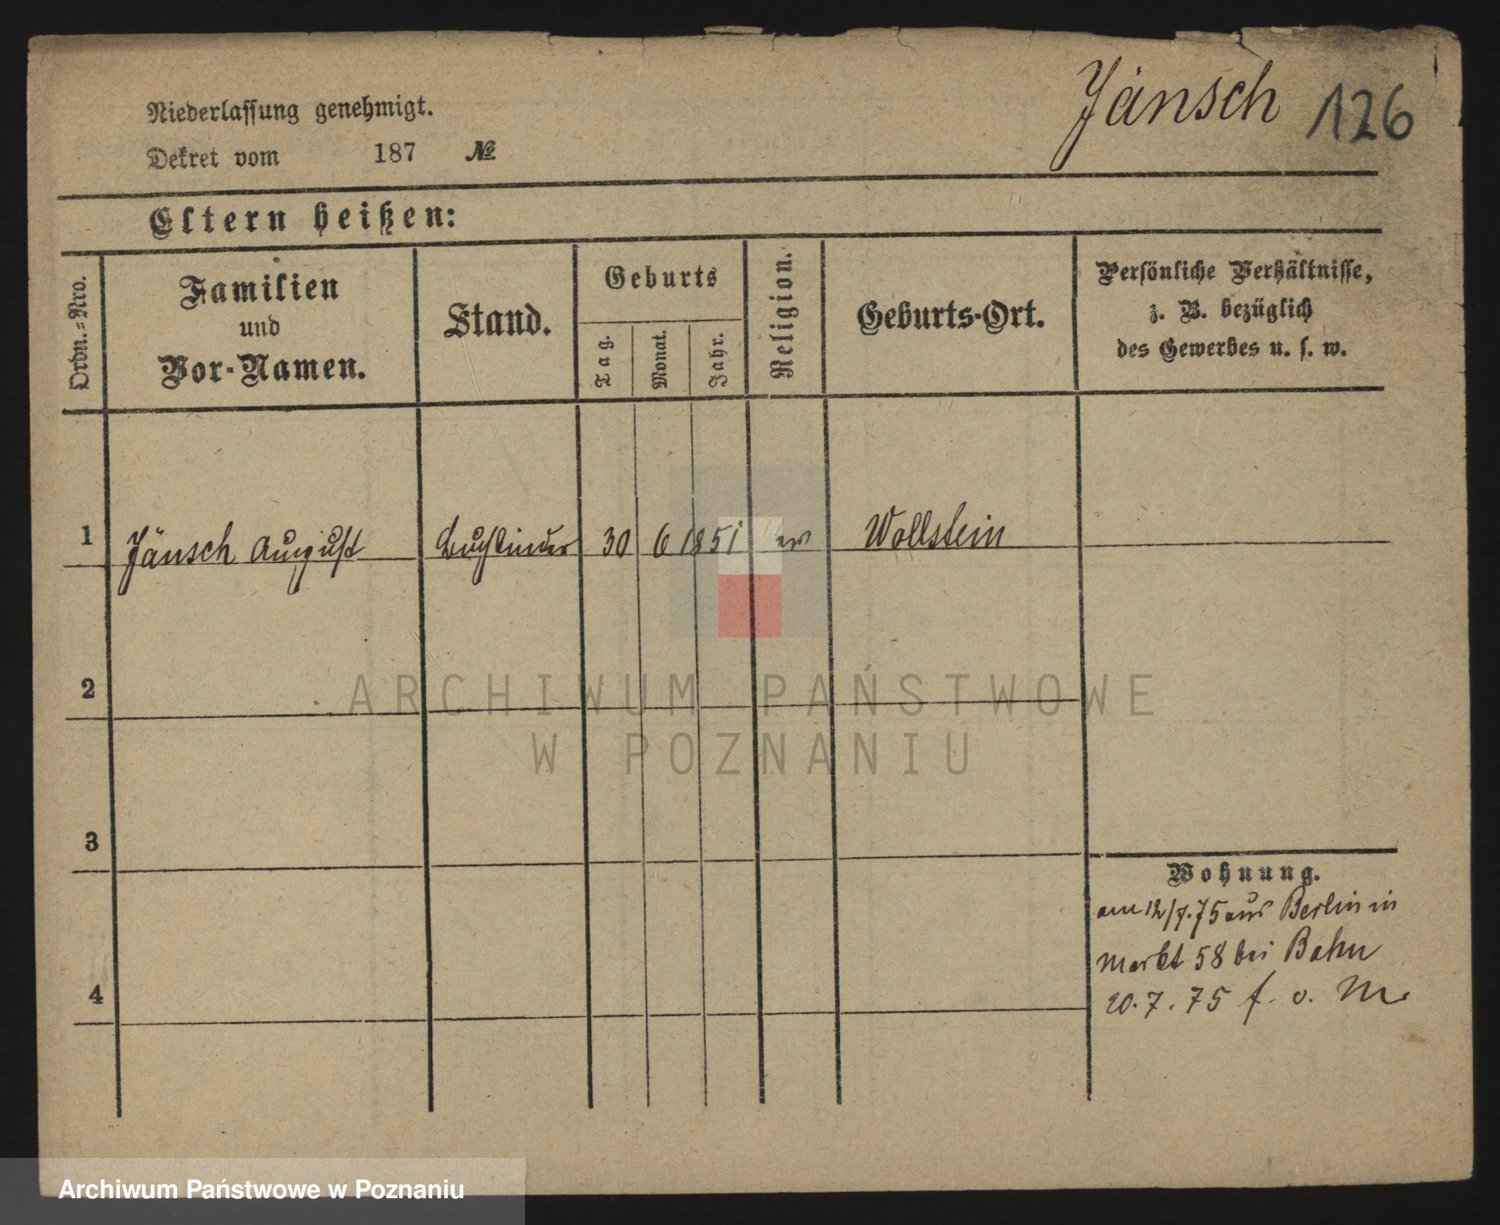 Jänsch 126
Niederlassung genehmigt.
Dekret vom 187 №
Eltern heißen:
Ordn.=Nro.
Familien
und
Vor-Namen.
Stand.
Geburts
Tag.
Monat.
Jahr.
Religion.
Geburts-Ort.
Persönliche Verhältnisse,
z. B. bezüglich
des Gewerbes u. s. w.
1 Jänsch August Buchbinder 30 6 1851 ev Wollstein
2
ARCHIWUM PAŃSTWOWE
W POZNANIU
3
Wohnung.
am 12/7.75 aus Berlin in
Markt 58 bei Bahn
4
20.7.75 f. v. M.
Archiwum Państwowe w Poznaniu